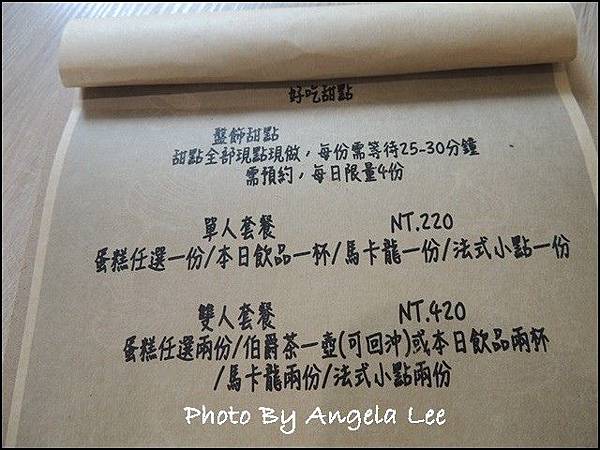 好吃甜點
盤飾甜點
甜點全部現點現做，每份需等待25-30分鐘
需預約，每日限量4份
單人套餐 NT.220
蛋糕任選一份/本日飲品一杯/馬卡龍一份/法式小點一份
雙人套餐 NT.420
蛋糕任選兩份/伯爵茶一壺(可回沖)或本日飲品兩杯
/馬卡龍兩份/法式小點兩份
Photo By Angela Lee